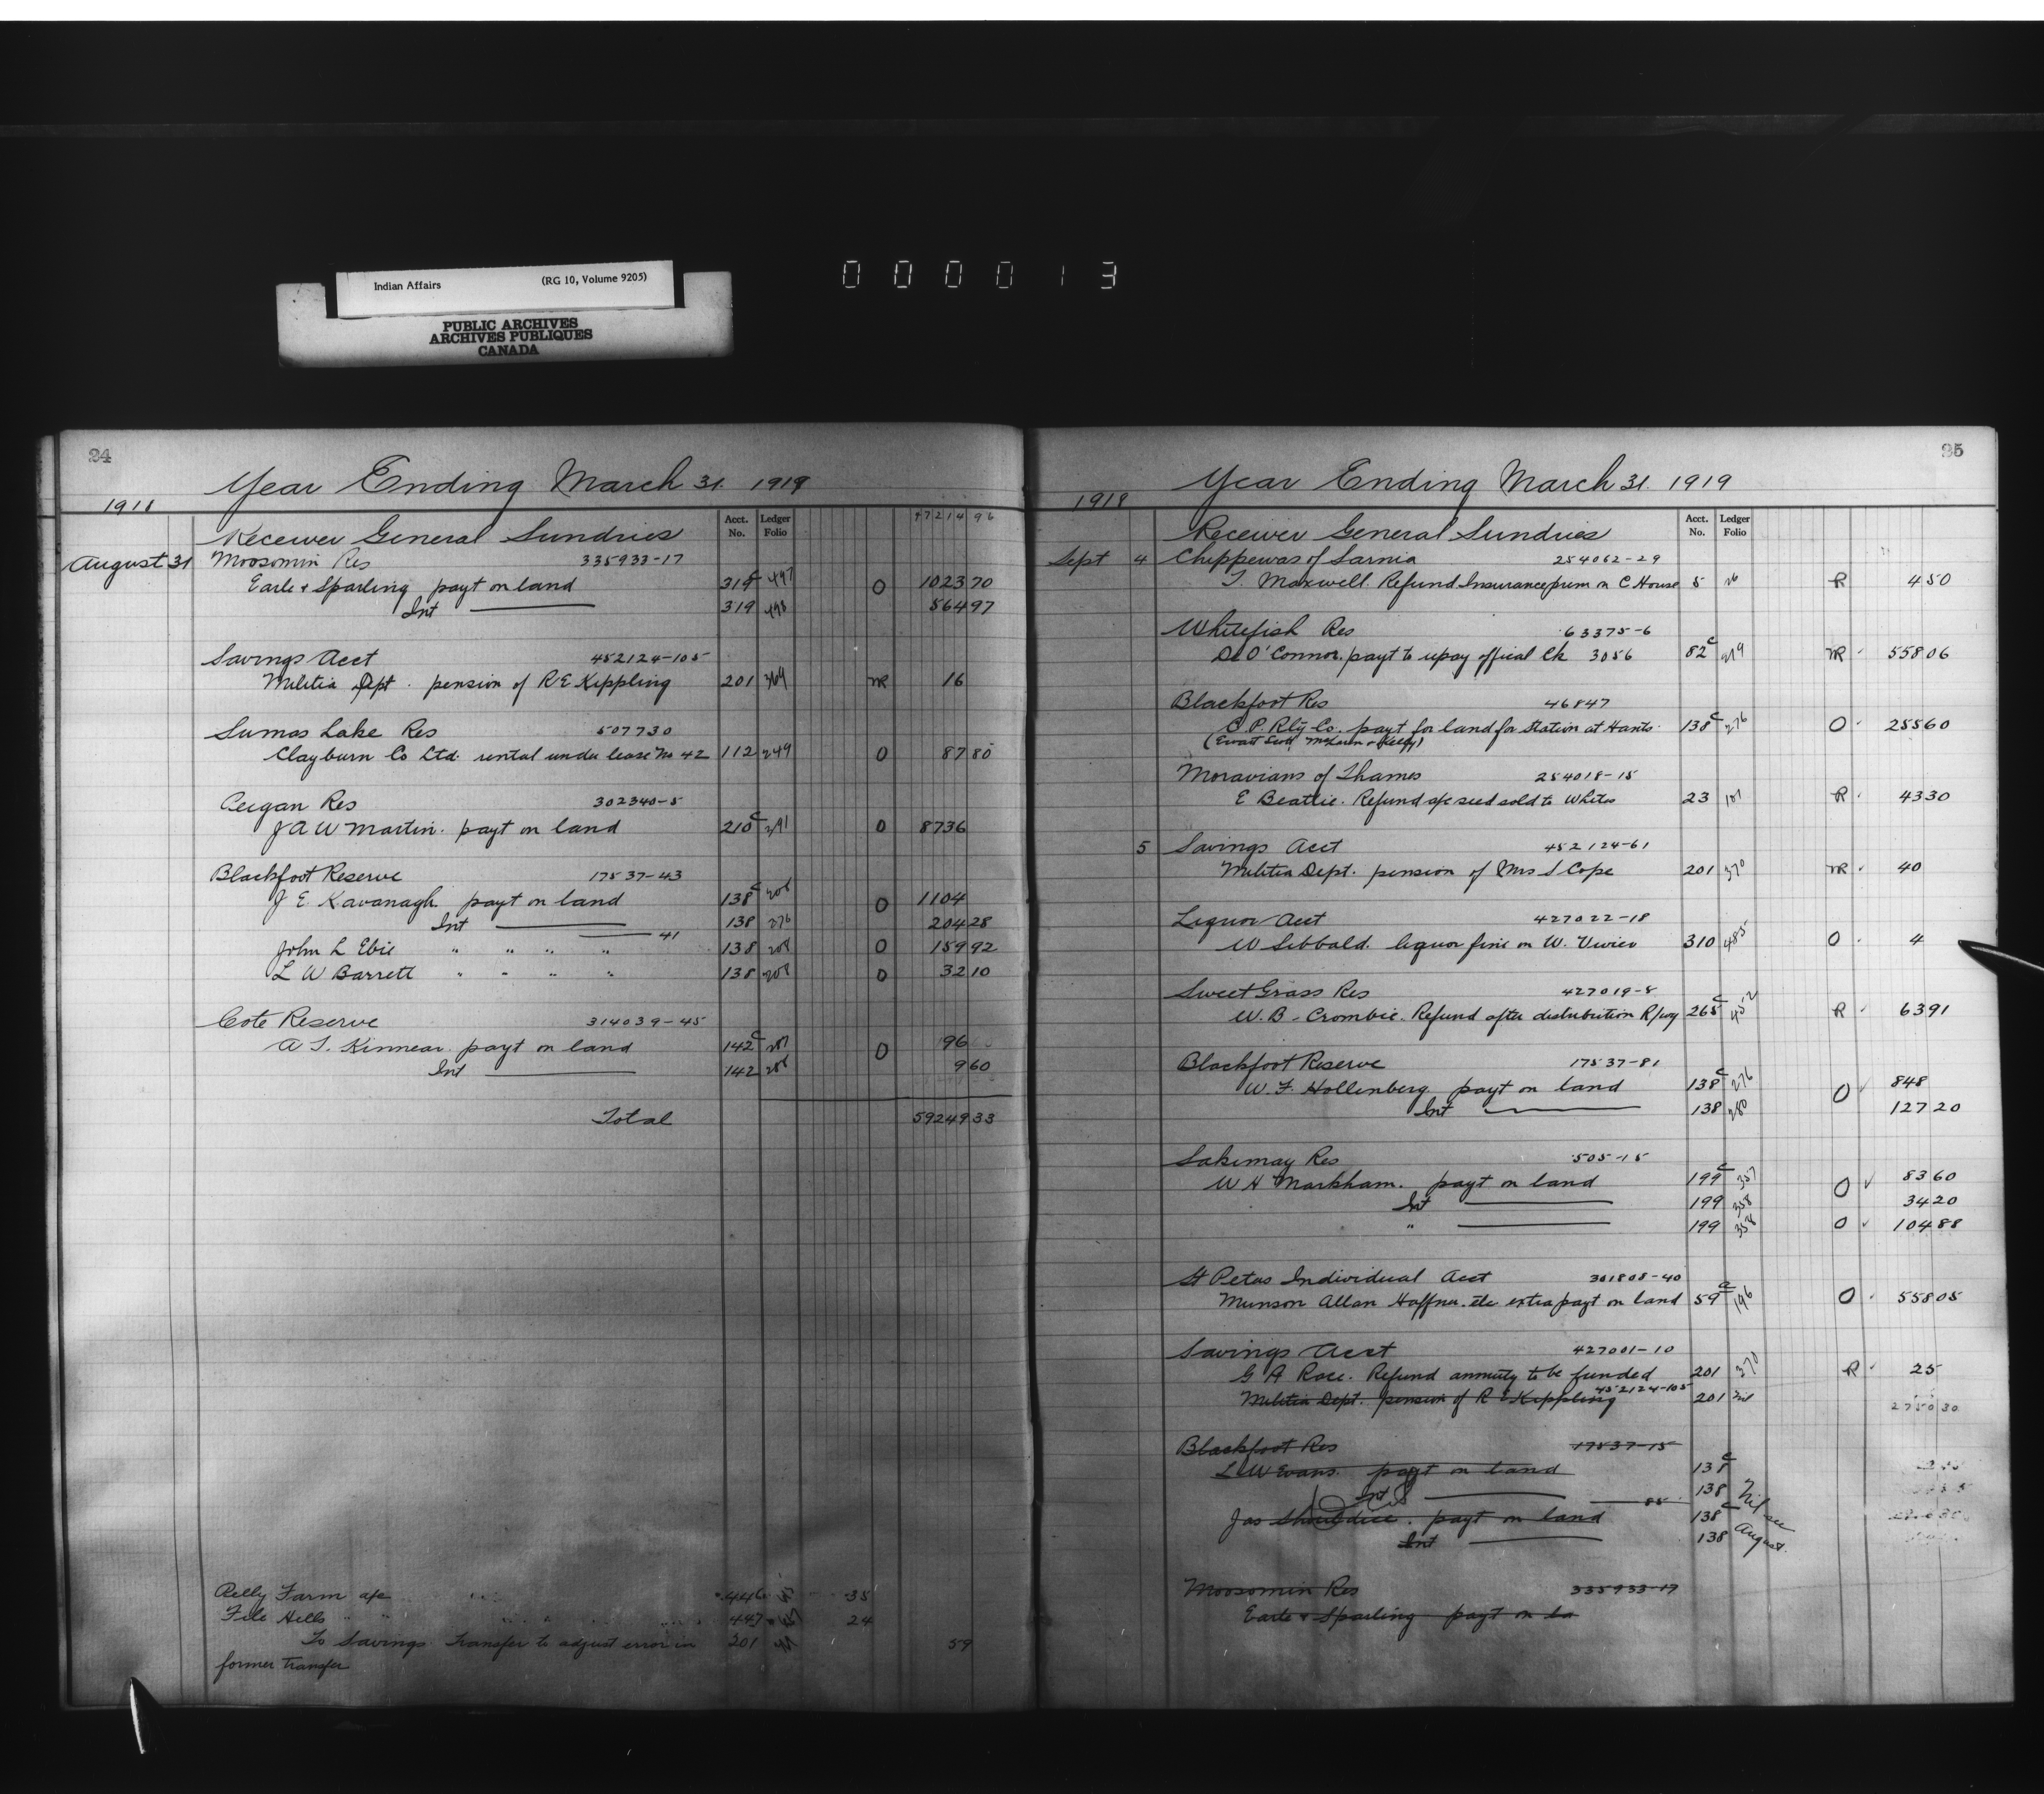 Indian Affairs (RG 10, Volume 9205)
PUBLIC ARCHIVES
ARCHIVES PUBLIQUES
CANADA
000013
24
Year Ending March 31. 1919
1918
Acct. No. Ledger Folio 47214 96
Receiver General Sundries
August 31 Moosomin Res 335933-17
Earle & Sparling payt on land 319 c 497 O 1023 70
Int 319 498 564 97
Savings Acct 452124-105
Militia Dept. pension of R E Kippling 201 369 NR 16
Sumas Lake Res 507730
Clayburn Co Ltd. rental under lease No 42 112 249 O 87 80
Peigan Res 302340-5
J A W Martin. payt on land 210 c 391 O 8736
Blackfoot Reserve 17537-43
J E Kavanagh payt on land 138 c 208 O 1104
Int 138 276 204 28
41
John L Ebie " " " " 138 208 O 159 92
L W Barrett " " " " 138 208 O 32 10
Cote Reserve 314039-45
A T. Kinnear. payt on land 142 c 287 O 96
Int 142 288 9 60
Total 59249 33
Pelly Farm a/c 446 35
File Hills " " 447 24
To Savings. Transfer to adjust error in 201 59
former transfer
25
Year Ending March 31. 1919
1918
Acct. No. Ledger Folio
Receiver General Sundries
Sept 4 Chippewas of Sarnia 254062-29
T. Maxwell. Refund Insurance prem on C House 5 26 R 4 50
Whitefish Res 63375-6
D O'Connor. payt to repay offical Ck 3056 82 c 219 NR 558 06
Blackfoot Res 46847
C. P. Rly Co. payt for land for station at Hants. 138 c 276 O 255 60
(Ewart Scott McLaren & Kelly)
Moravians of Thames 254018-15
E Beattie. Refund a/c seed sold to Whites 23 107 R 43 30
5 Savings Acct 452124-61
Militia Dept. pension of Mrs S Cope 201 370 NR 40
Liquor Acct 427022-18
W Sibbald. liquor fine on W. Vivier 310 485 O 4
Sweet Grass Res 427019-8
W. B. Crombie. Refund after distribution R/way 265 c 452 R 63 91
Blackfoot Reserve 17537-81
W. F. Hollenberg payt on land 138 c 276 O 848
Int 138 280 127 20
Sakimay Res 505-15
W H Markham. payt on land 199 c 357 O 83 60
Int 199 358 34 20
" 199 358 O 104 88
St Peters Individual Acct 301808-40
Munson Allan Haffner. etc extra payt on land 59 a 196 O 558 05
Savings Acct 427001-10
G A Race. Refund annuity to be funded 201 370 R 25
452124-105
Militia Dept. pension of R E Kippling 201 Nil 2750 30
Blackfoot Res 17537-15
L W Evans. payt on land 138 c
Int 138
88
Jas Shouldice. payt on land 138 c Nil see
Int 138 August.
Moosomin Res 335933-17
Earle & Sparling payt on la